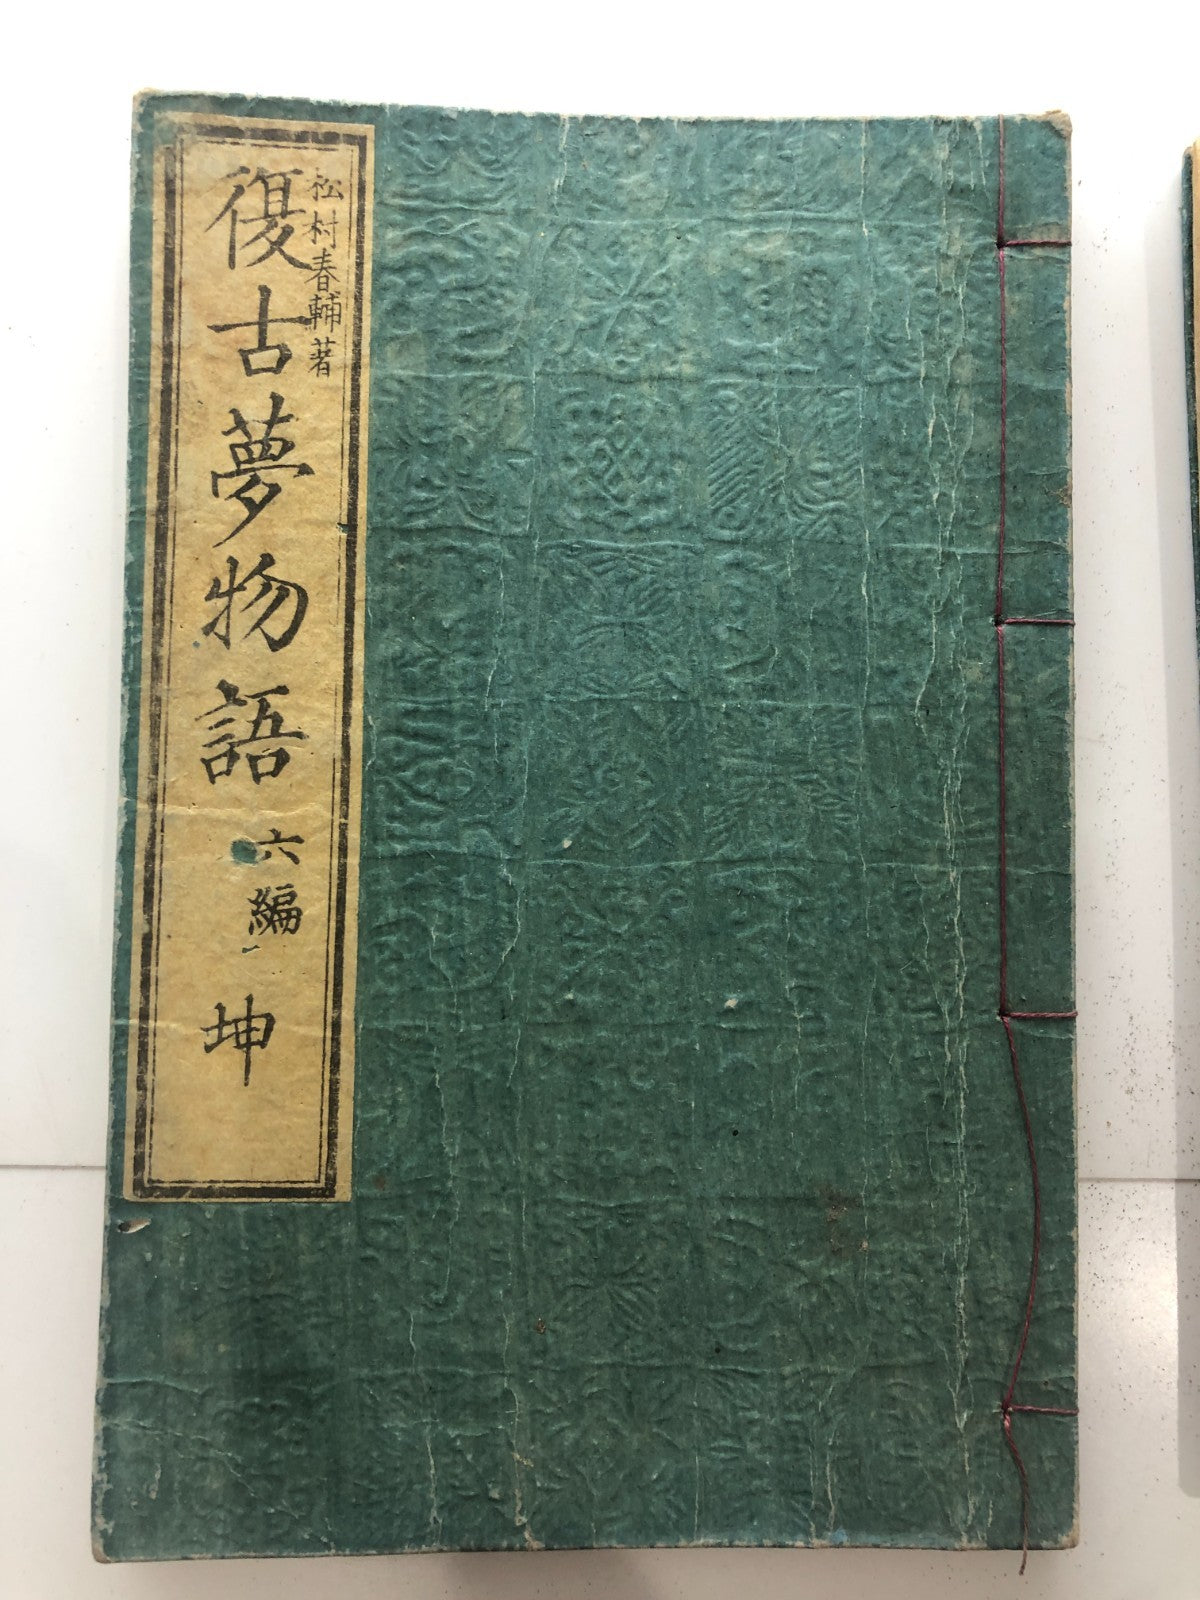 松村春輔著
復古夢物語
六編
坤